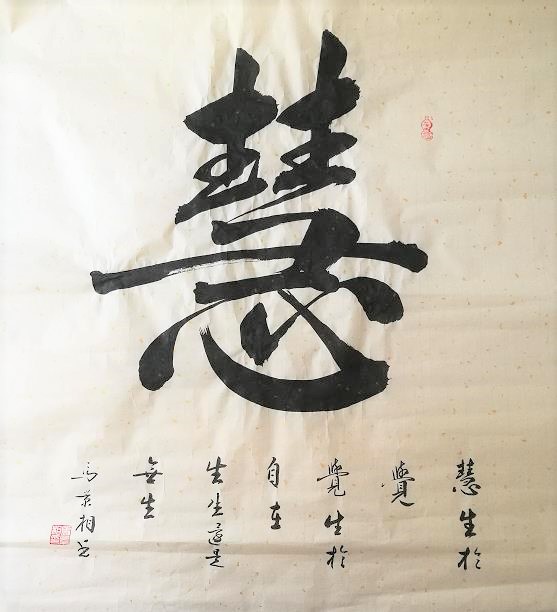 慧
慧生於
覺
覺生於
自在
生生還是
無生
馬景相書